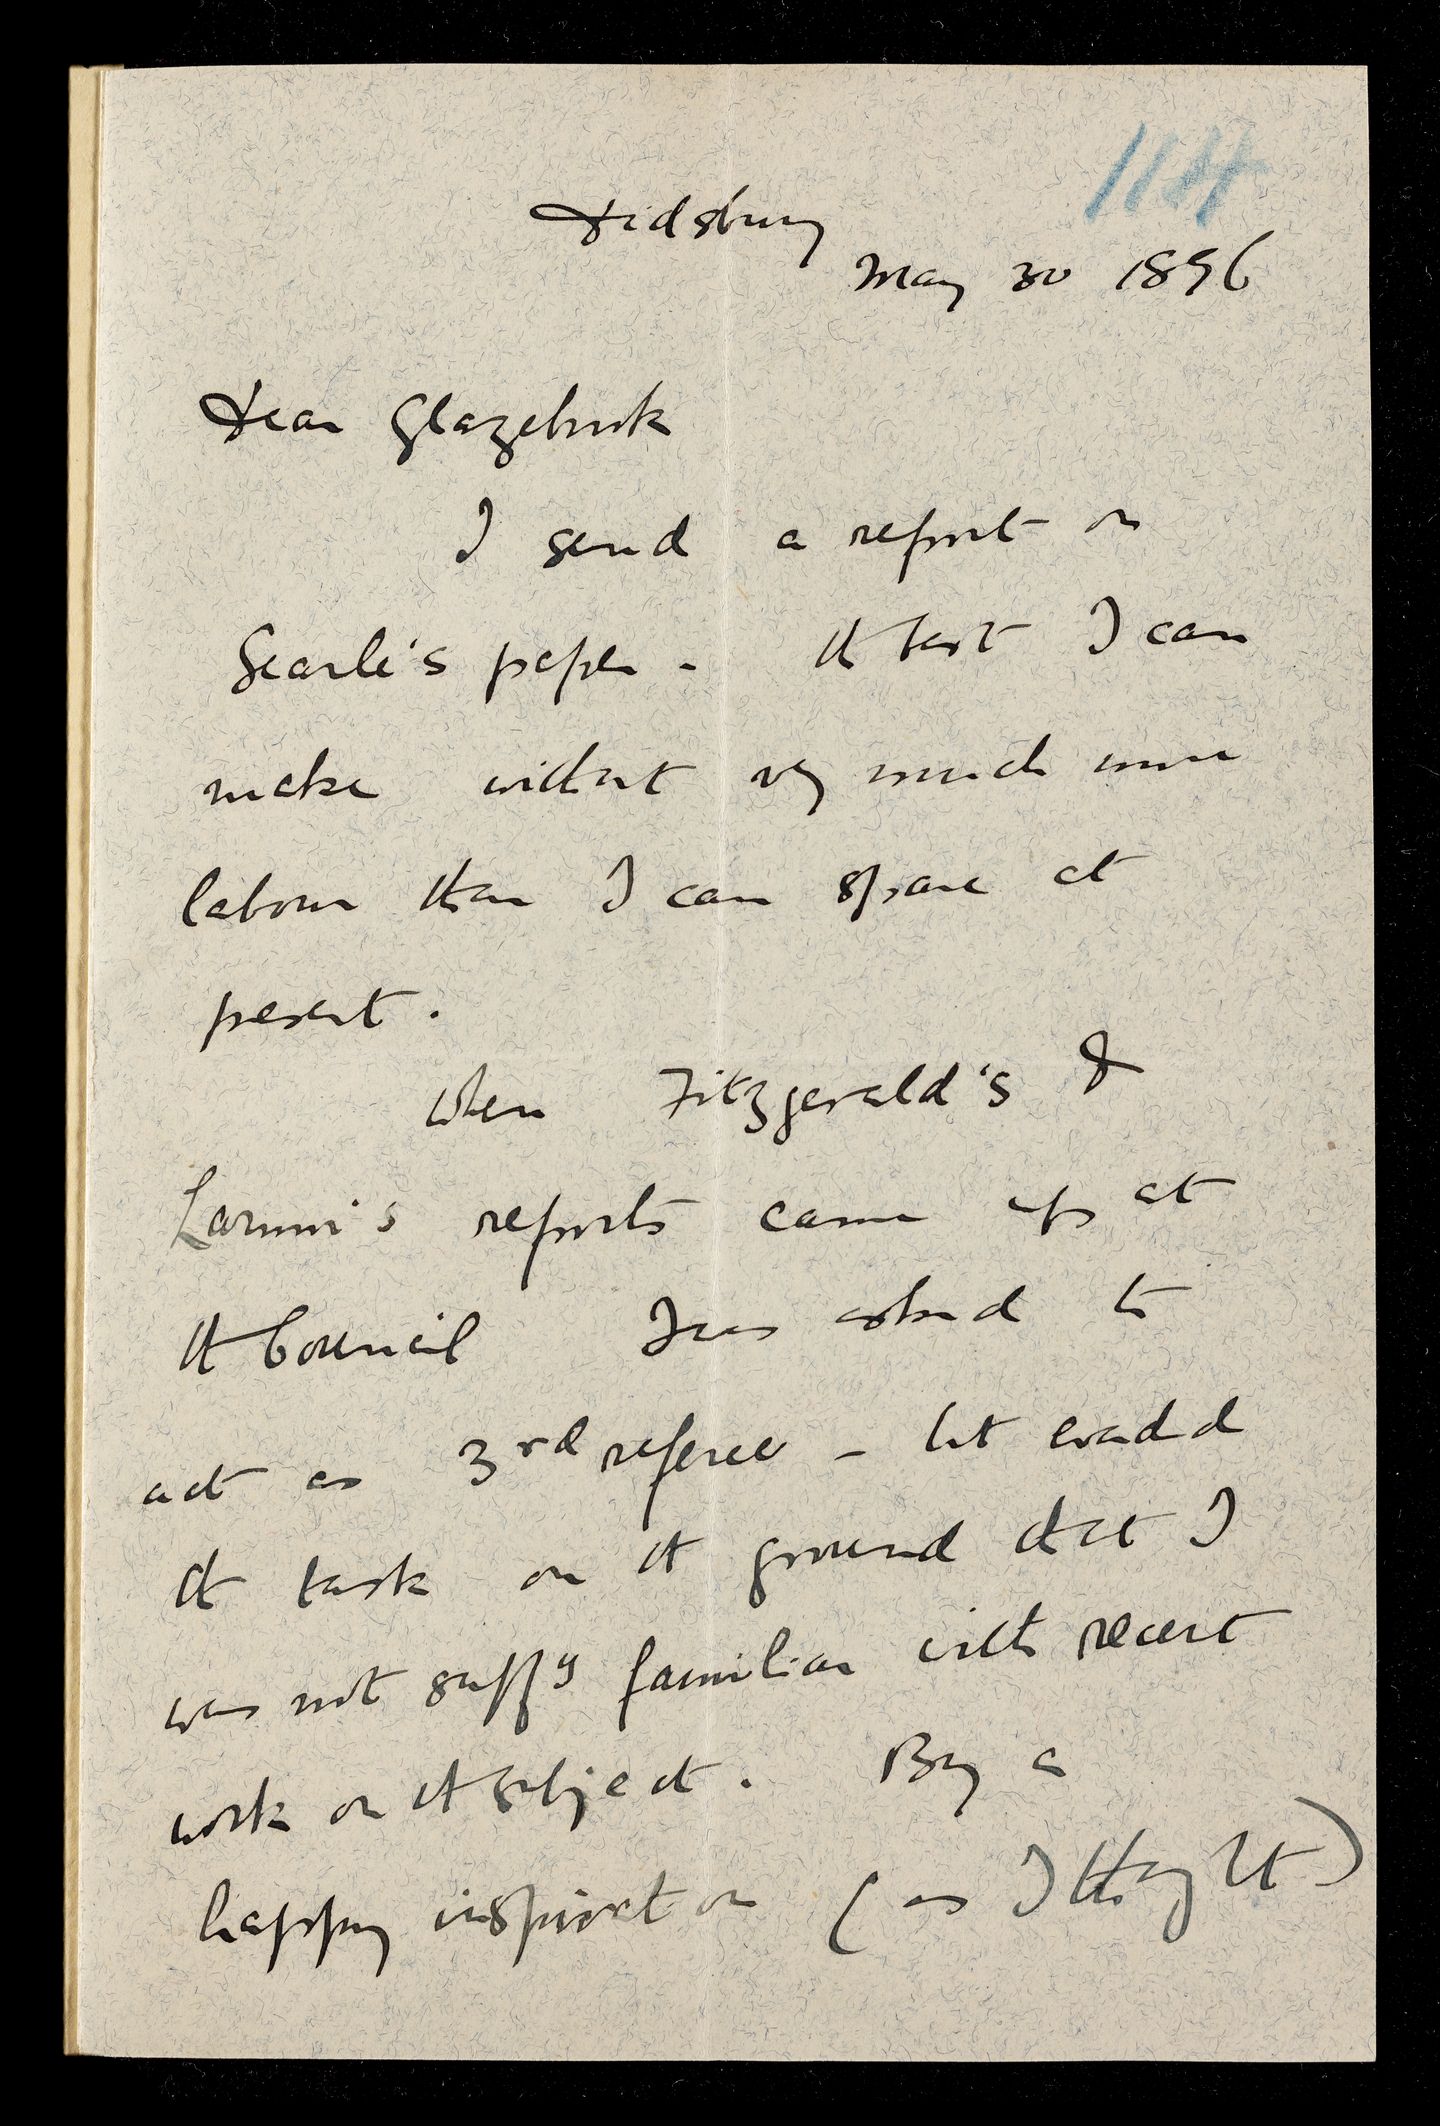 114
Didsbury
May 30 1896
Dear Glazebrook
I send a report on
Searle's paper - the best I can
make without very much more
labour than I can spare at
present.
When Fitzgerald's &
Larmor's reports came up at
the Council I was asked to
act as 3rd referee - but evaded
the task on the ground that I
was not suffy familiar with recent
work on the subject. By a
happy inspiration (as I thought)